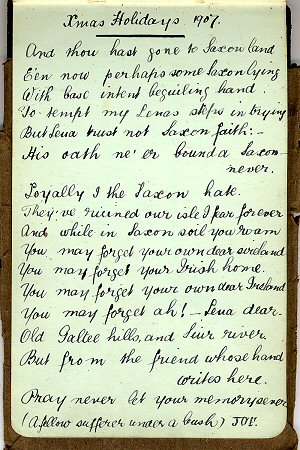 Xmas Holidays 1907.
And thou hast gone to Saxon land
E'en now perhaps some Saxon lying
With base intent beguiling hand
To tempt my Lenas steps in trying
But Lena trust not Saxon faith:-
His oath ne'er bound a Saxon
never.
Loyally I the Saxon hate.
They've ruined our isle I fear forever
And while in Saxon soil you roam
You may forget your own dear sireland
You may forget your Irish home.
You may forget your own dear Ireland
You may forget ah! - Lena dear.
Old Galtee hills, and Suir river.
But from the friend whose hand
writes here.
Pray never let your memory sever
(A fellow sufferer under a bush)